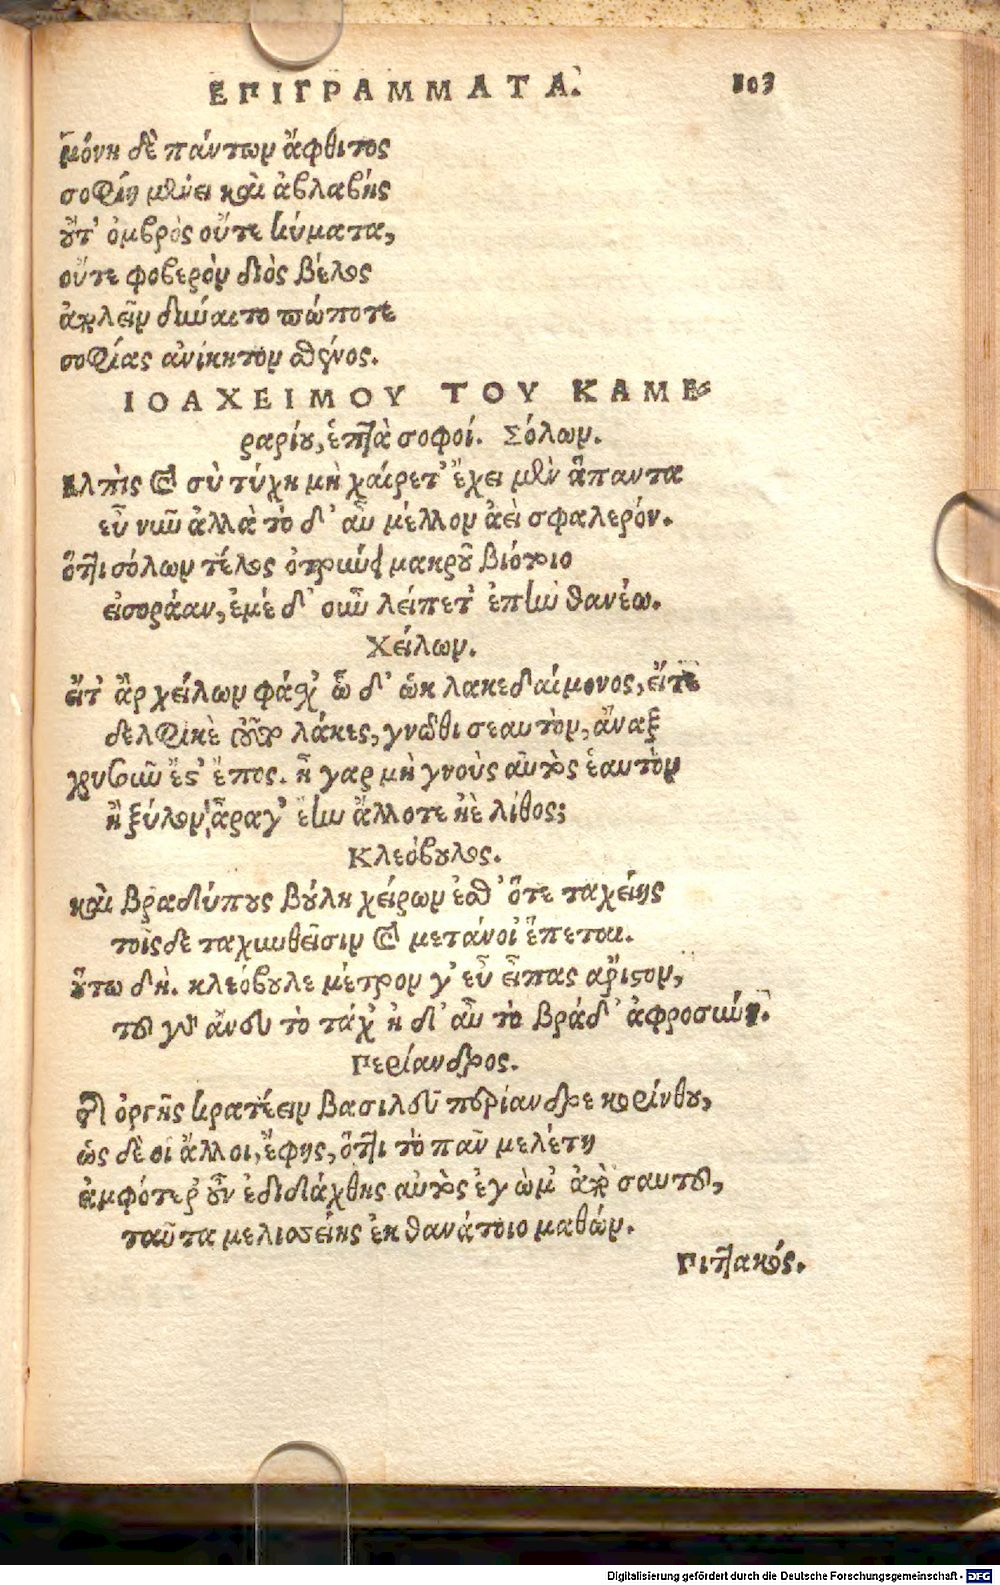 ΕΠΙΓΡΑΜΜΑΤΑ. 103
μόνη δὲ πάντων ἄφθιτος
σοφίη μένει καὶ ἀβλαβής
οὔτ' ὀμβρὸς οὔτε κύματα,
οὔτε φοβερὸν διὸς βέλος
ἀκλεῖν δύναιτο πώποτε
σοφίας ἀνίκητον σθένος.
ΙΟΑΧΕΙΜΟΥ ΤΟΥ ΚΑΜΕ-
ραρίου, ἑπτὰ σοφοί. Σόλων.
Ελπὶς καὶ σὺ τύχη μὴ χαίρετ' ἔχει μὲν ἅπαντα
εὖ νῦν ἀλλὰ τὸ δ' αὖ μέλλον ἀεὶ σφαλερόν.
ὅττι σόλων τέλος ὀτρύνεις μακροῦ βιότοιο
εἰσοράαν, ἐμέ δ' οὖν λείπετ' ἐπὴν θανέω.
Χείλων.
εἴτ' ἂρ χείλων φάσχ' ὧ δ' ὡκ λακεδαίμονος, εἴτε
δελφικὲ λάκες, γνῶθι σεαυτὸν, ἄναξ
χρυσοῦν ἔστ' ἔπος. ἢ γαρ μὴ γνοὺς αὐτὸς ἑαυτὸν
ἢ ξύλον, ἆραγ' ἔην ἄλλοτε ἠὲ λίθος;
Κλεόβουλος.
καὶ βραδύπους βούλη χείρων ἐσθ' ὅτε ταχείης
τοῖς δε ταχυνθεῖσιν καὶ μετάνοι' ἕπεται.
οὕτω δὴ. κλεόβουλε μέτρον γ' εὖ εἶπας ἄριστον,
του γὰρ ἄνευ τὸ τάχ' ἠ δ' αὖ τὸ βράδ' ἀφροσύνη.
Περίανδρος.
Οἷ ὀργῆς κρατέειν βασιλεῦ περίανδρε κορίνθου,
ὡς δὲ οἱ ἄλλοι, ἔφης, ὅττι τὸ πᾶν μελέτη
ἀμφότερ' οὖν ἐδιδάχθης αὐτὸς ἐγὼμ' ἀπὸ σαυτοῦ,
ταῦτα μελιοσείης ἐκ θανάτοιο μαθών.
Πιττακός.